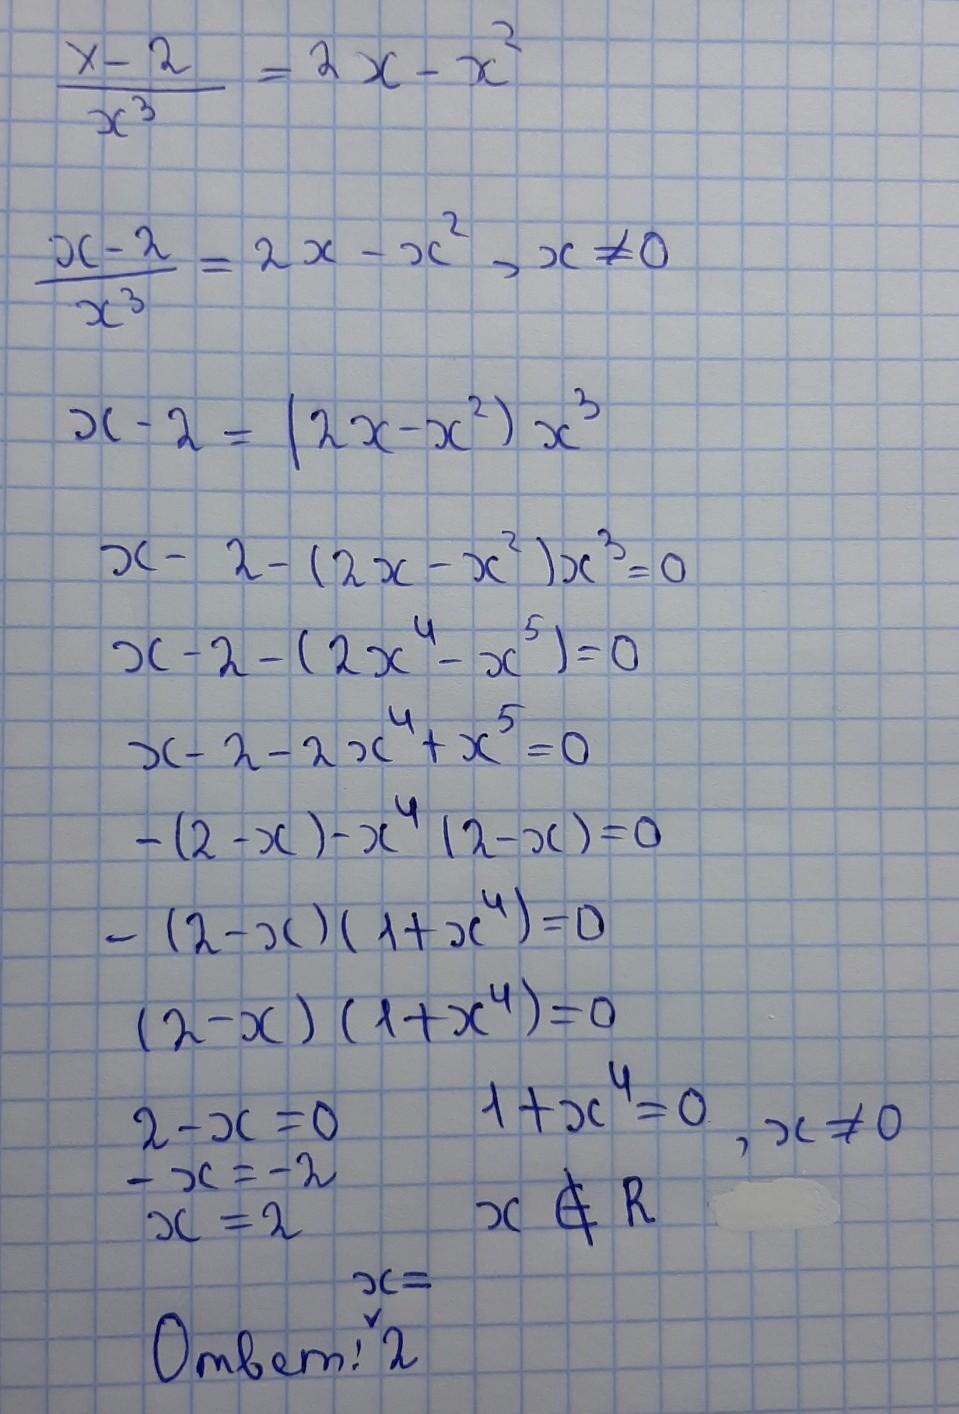 x-2/x³ = 2x - x²
x-2/x³ = 2x - x², x ≠ 0
x - 2 = (2x - x²) x³
x - 2 - (2x - x²)x³ = 0
x - 2 - (2x⁴ - x⁵) = 0
x - 2 - 2x⁴ + x⁵ = 0
-(2 - x) - x⁴ (2 - x) = 0
- (2 - x)(1 + x⁴) = 0
(2 - x) (1 + x⁴) = 0
2 - x = 0 1 + x⁴ = 0, x ≠ 0
- x = -2
x = 2 x ∉ R
x =
Ответ: 2